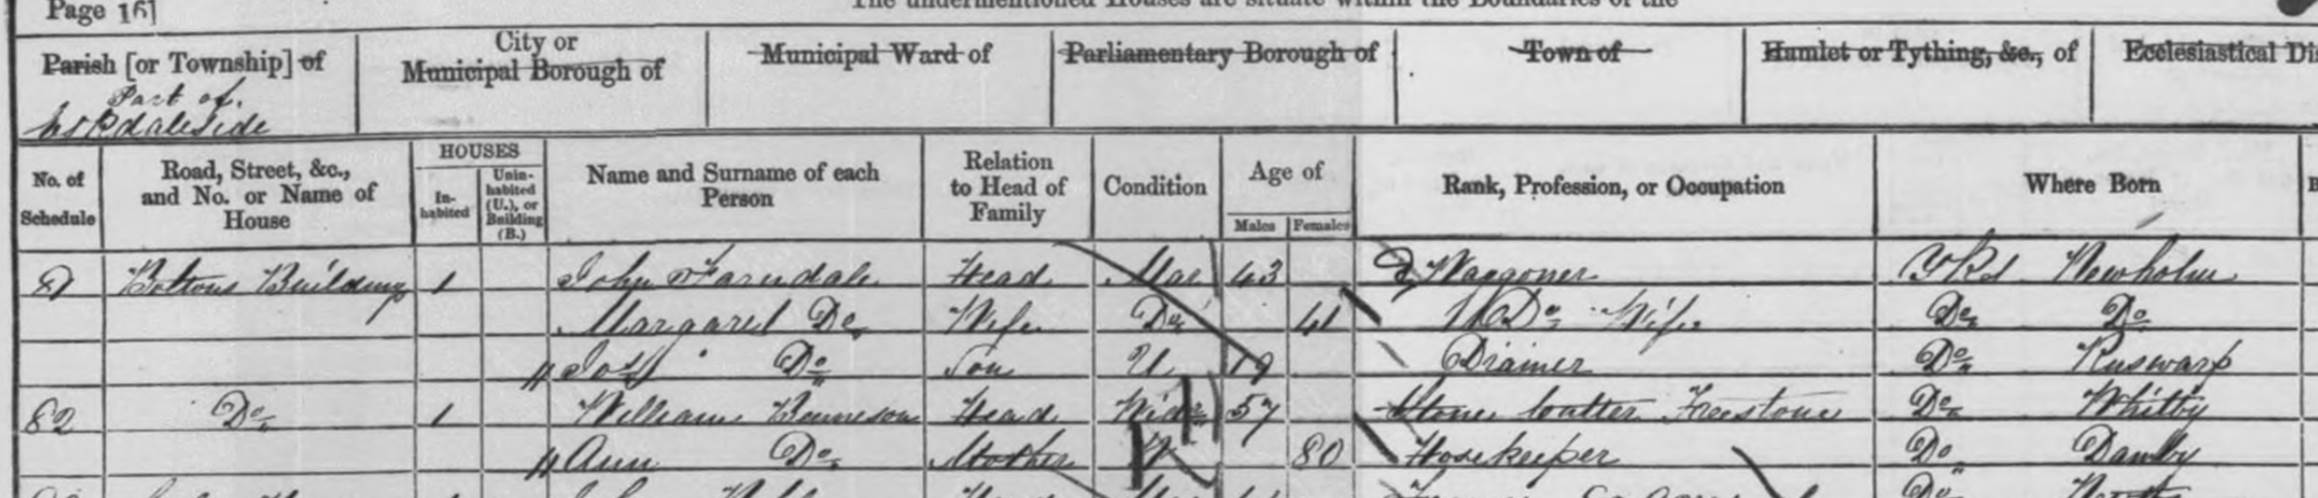 Page 16]
The undermentioned Houses are situate within the Boundaries of the
Parish [or Township] of
City or Municipal Borough of
Municipal Ward of
Parliamentary Borough of
Town of
Hamlet or Tything, &c., of
Ecclesiastical Di
Part of.
No. of Schedule
Road, Street, &c., and No. or Name of House
HOUSES
In-habited
Unin-habited (U.), or Building (B.)
Name and Surname of each Person
Relation to Head of Family
Condition
Age of
Males
Females
Rank, Profession, or Occupation
Where Born
81 Boltons Building 1 John Farndale Head Mar 43 Waggoner Newholm
Margaret Do Wife Do 41 Do Wife Do Do
Son U 19 Drainer Do Ruswarp
82 Do 1 William Head Widr 57 Stone Cutter Freestone Do Whitby
Ann Do Mother W 80 Hosekeeper Do Danby